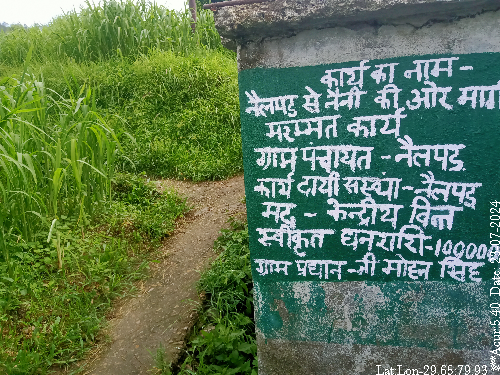 कार्य का नाम -
नैलपड़ से नैनी की ओर मार्ग
मरम्मत कार्य
ग्राम पंचायत - नैलपड़
कार्य दायी संस्था - नैलपड़
मद - केन्द्रीय वित्त
स्वीकृत धनराशि - 100000
ग्राम प्रधान - श्री मोहन सिंह
Lat Lon-29.65,79.93